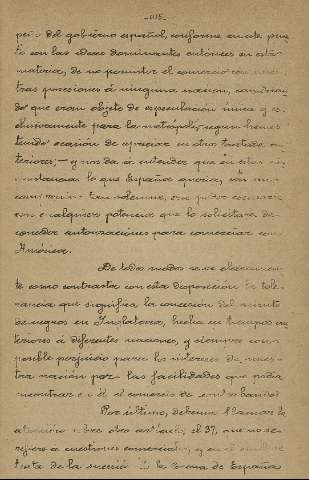 -105-
peño del gobierno español, conforme en este pun
to con las ideas dominantes entonces en esta
materia, de no permitir el comercio con nues
tras posesiones á ninguna nacion, consideran
do que eran objeto de especulación única y ex
clusivamente para la metrópoli, segun hemos
tenido ocasión de apreciar en otros tratados an
teriores; — y nos da á entender que en estas cir
cunstancias lo que España queria,
tan solemne, era poder
con cualquier potencia que lo solicitara de
conceder autorizaciones para comerciar con
América.
De todos modos se ve claramen
te como contrasta con esta disposición la tole
rancia que significa la concesión del asiento
de negros en Inglaterra, hecha en tiempos an
teriores á diferentes naciones, y siempre con
posible perjuicio para los intereses de nues
tra nación por las facilidades que podia
encontrar en él el comercio de contrabando.
Por último, debemos llamar la
atención sobre otro artículo, el 37, que no se
refiere a cuestiones comerciales, y en el
trata de la sucesión á la Corona de España